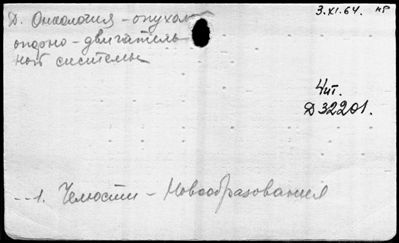 Д. Онкология - опухол
опорно - двигатель-
ной системы
3.XI.64.
Чит.
Д 32201.
1. Челюсти - Новообразования